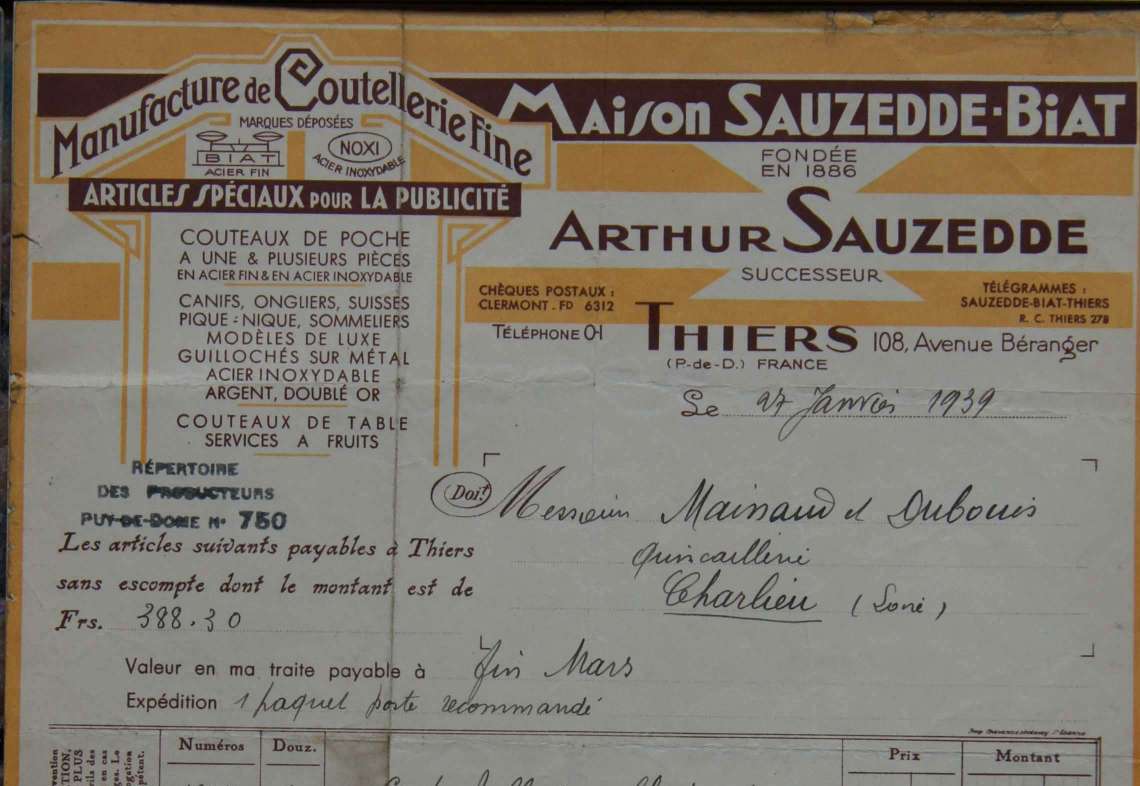 Manufacture de Coutellerie Fine
MARQUES DÉPOSÉES
BIAT
ACIER FIN
NOXI
ACIER INOXYDABLE
ARTICLES SPÉCIAUX POUR LA PUBLICITÉ
COUTEAUX DE POCHE
A UNE & PLUSIEURS PIÈCES
EN ACIER FIN & EN ACIER INOXYDABLE
CANIFS, ONGLIERS, SUISSES
PIQUE-NIQUE, SOMMELIERS
MODÈLES DE LUXE
GUILLOCHÉS SUR MÉTAL
ACIER INOXYDABLE
ARGENT, DOUBLÉ OR
COUTEAUX DE TABLE
SERVICES A FRUITS
MAISON SAUZEDDE-BIAT
FONDÉE
EN 1886
ARTHUR SAUZEDDE
SUCCESSEUR
CHÈQUES POSTAUX :
CLERMONT-FD 6312
TÉLÉGRAMMES :
SAUZEDDE-BIAT-THIERS
R. C. THIERS 278
TÉLÉPHONE 0-1
THIERS 108, Avenue Béranger
(P-de-D.) FRANCE
Le 27 Janvier 1939
RÉPERTOIRE
DES PRODUCTEURS
PUY-DE-DOME N° 750
Doit Messieurs Mainaud et Dubouis
Quincaillerie
Charlieu (Loire)
Les articles suivants payables à Thiers
sans escompte dont le montant est de
Frs. 388.30
Valeur en ma traite payable à fin Mars
Expédition 1 paquet poste recommandé
Numéros Douz. Prix Montant